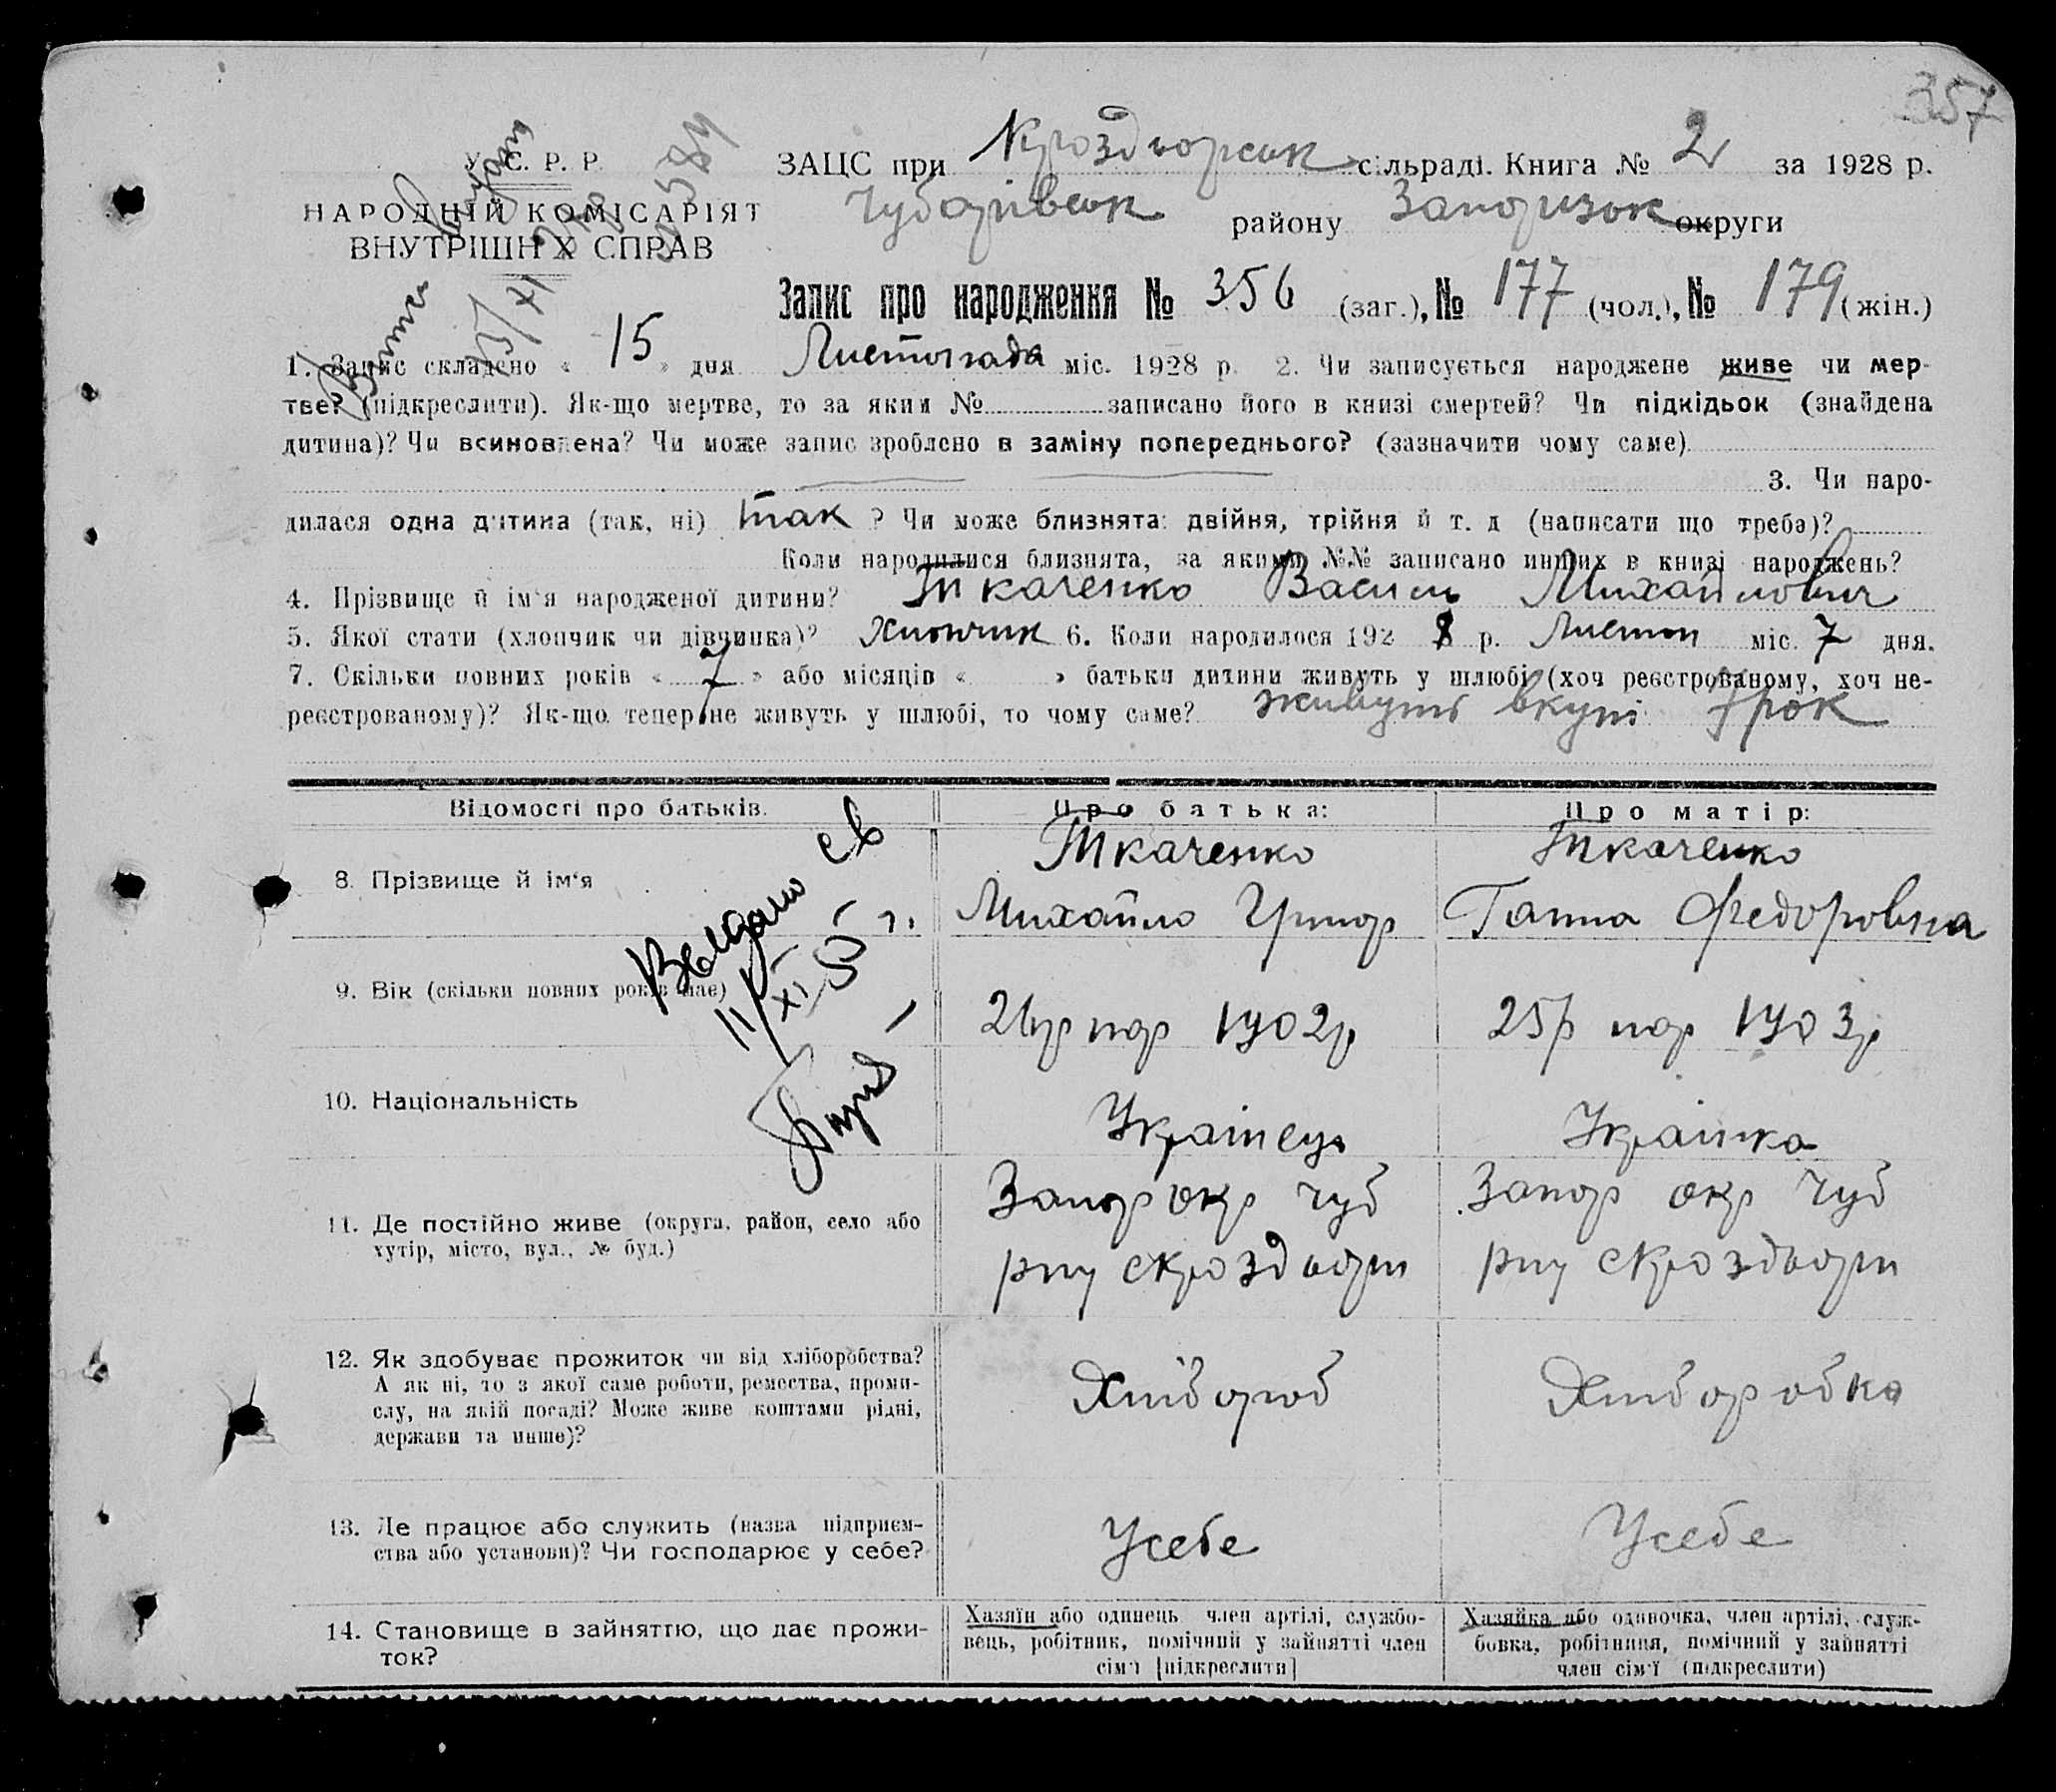 357
У. С. Р. Р.
НАРОДНІЙ КОМІСАРІЯТ
ВНУТРІШН Х СПРАВ
ЗАЦС при Кроздворськ сільраді. Книга № 2 за 1928 р.
Чубарівськ району Запоризьк округи
Запис про народження № 356 (заг.), № 177 (чол.), № 179 (жін.)
1. Запис складено « 15 » дня Листопада міс. 1928 р. 2. Чи записується народжене живе чи мер-
тве? (підкреслити). Як-що мертве, то за яким № записано його в книзі смертей? Чи підкідьок (знайдена
дитина)? Чи всиновлена? Чи може запис зроблено в заміну попереднього? (зазначити чому саме)
3. Чи наро-
дилася одна дитина (так, ні) так ? Чи може близнята: двійня, трійня й т. д (написати що треба)?
Коли народилися близнята, за якими №№ записано инших в книзі народжень?
4. Прізвище й ім'я народженої дитини? Ткаченко Василь Михайлович
5. Якої стати (хлопчик чи дівчинка)? Хлопчик 6. Коли народилося 192 8 р. Листоп міс. 7 дня.
7. Скільки повних років « 7 » або місяців « » батьки дитини живуть у шлюбі (хоч реєстрованому, хоч не-
реєстрованому)? Як-що тепер не живуть у шлюбі, то чому саме? живуть вкупі 7 рок
Відомості про батьків. Про батька: Про матір:
8. Прізвище й ім'я Ткаченко Михайло Григор Ткаченко Ганна Федоровна
9. Вік (скільки повних років має) 26р нар 1902р 25р нар 1903р
10. Національність Українець Українка
11. Де постійно живе (округа, район, село або Запор окр Чуб Запор окр Чуб
хутір, місто, вул., № буд.) рну с Кроздворп рну с Кроздворп
12. Як здобуває прожиток чи від хліборобства? Хлібороб Хліборобка
А як ні, то з якої саме роботи, ремества, проми-
слу, на якій посаді? Може живе коштами рідні,
держави та инше)?
13. Де працює або служить (назва підприєм- Усебе Усебе
ства або установи)? Чи господарює у себе?
14. Становище в зайняттю, що дає прожи- Хазяїн або одинець член артілі, службо- Хазяйка або одиночка, член артілі, служ-
ток? вець, робітник, помічний у зайнятті член бовка, робітниця, помічний у зайнятті
сім'ї [підкреслити] член сім'ї (підкреслити)
Выдано св
11/XI